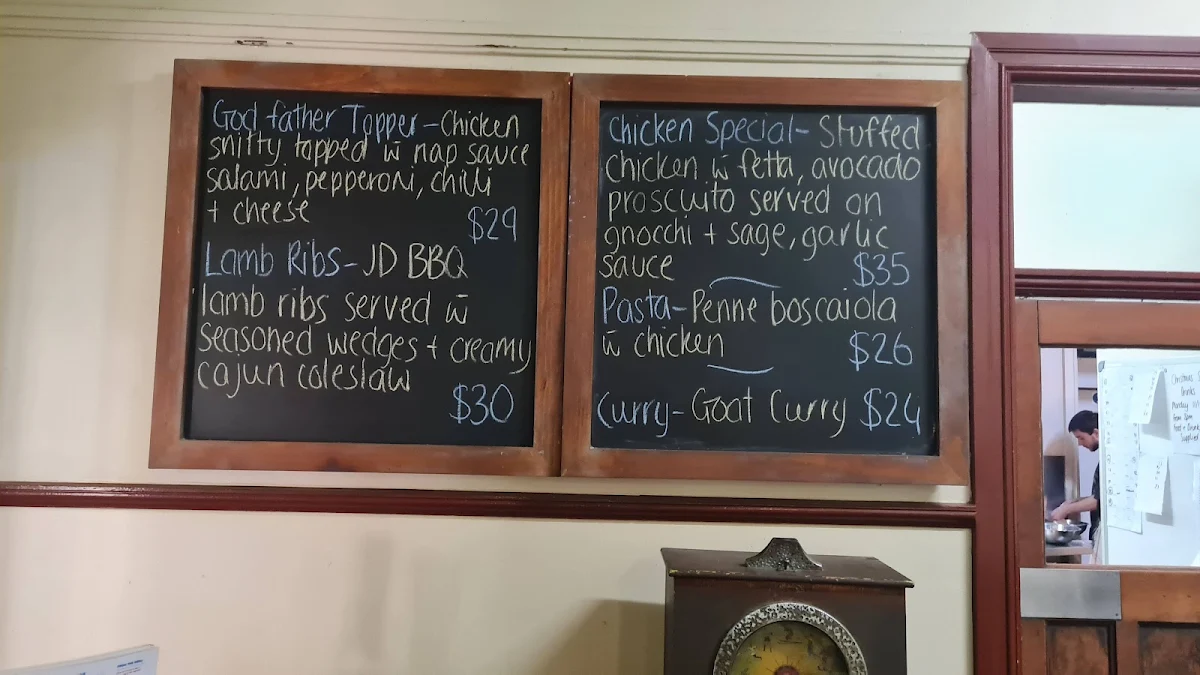 God father Topper - Chicken
snitty topped w̄ nap sauce
salami, pepperoni, chilli
+ cheese
$29
Lamb Ribs - JD BBQ
lamb ribs served w̄
seasoned wedges + creamy
cajun coleslaw
$30
Chicken Special - Stuffed
chicken w̄ fetta, avocado
proscuito served on
gnocchi + sage, garlic
sauce $35
Pasta - Penne boscaiola
w̄ chicken $26
Curry - Goat Curry $24
Christmas
Drinks
Monday